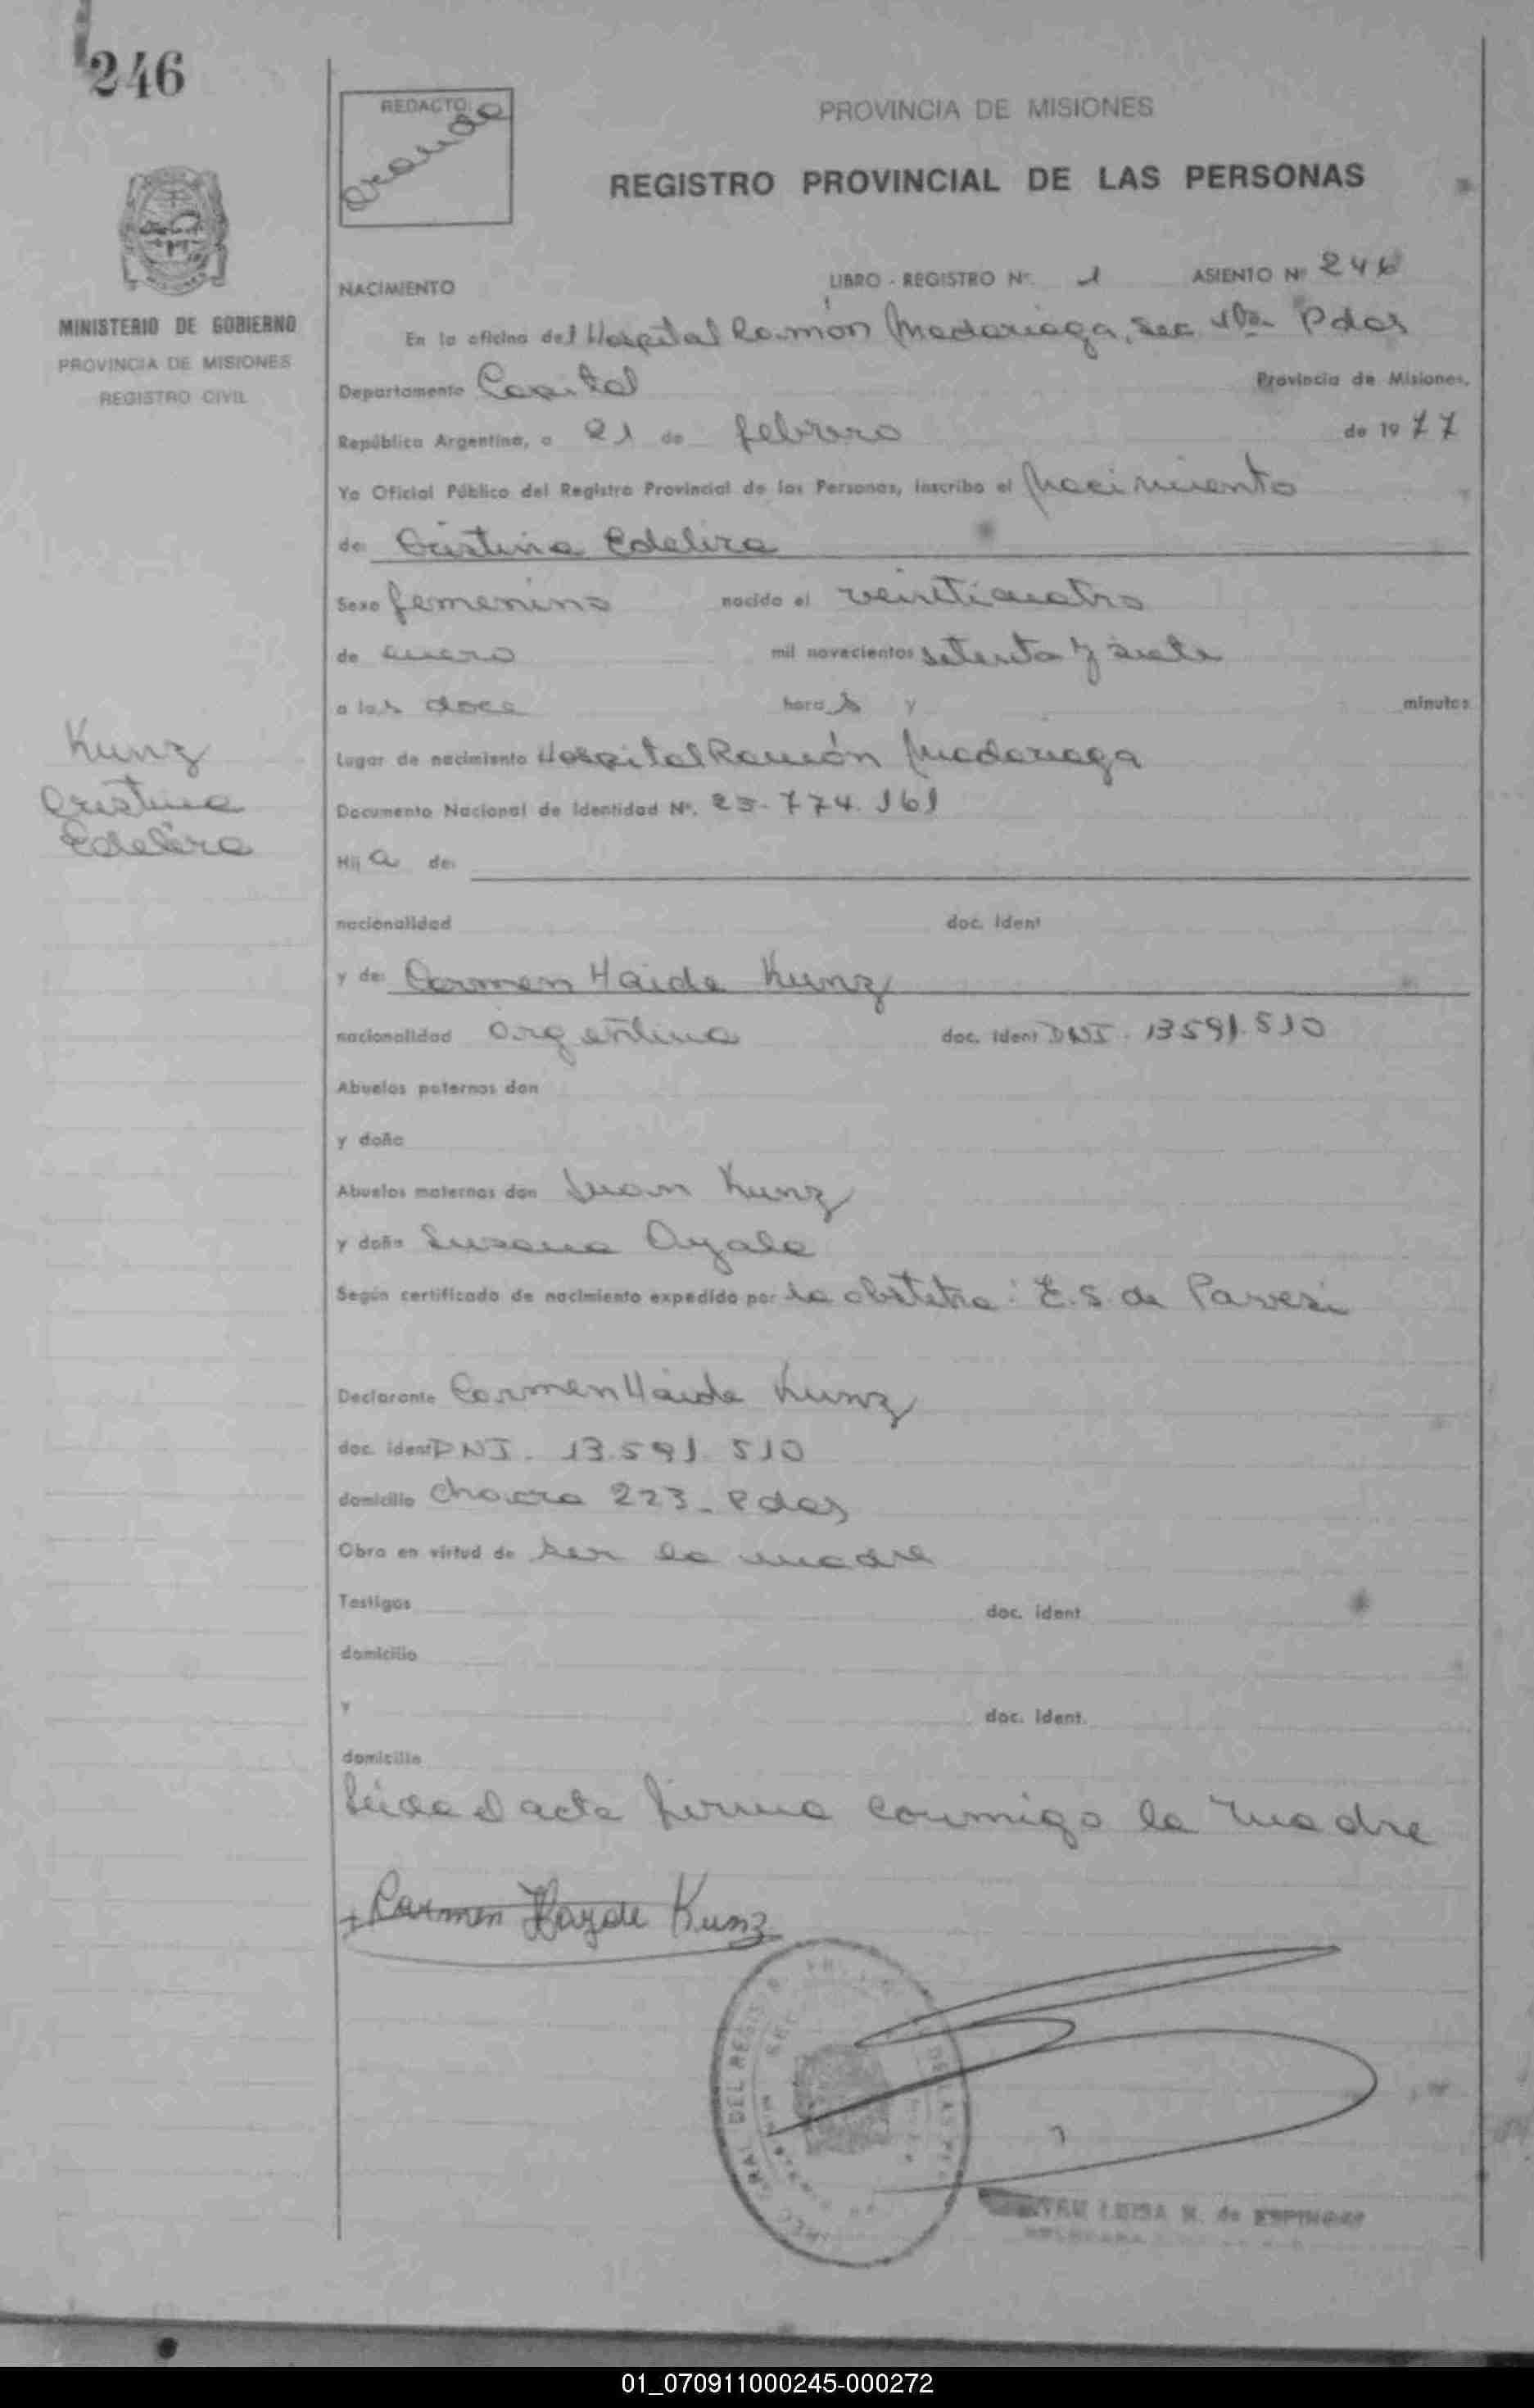 246
REDACTO:
PROVINCIA DE MISIONES
REGISTRO PROVINCIAL DE LAS PERSONAS
MINISTERIO DE GOBIERNO
PROVINCIA DE MISIONES
REGISTRO CIVIL
NACIMIENTO LIBRO - REGISTRO Nº. 1 ASIENTO Nº 246
En la oficina del Hospital Ramón Madariaga, Sec Pdas
Departamento Capital Provincia de Misiones,
República Argentina, a 21 de febrero de 1977
Yo Oficial Público del Registro Provincial de las Personas, inscribo el Nacimiento
de: Cristina Edelira
Sexo femenino nacido el veinticuatro
de enero mil novecientos setenta y siete
a las doce horas y minutos
Kunz
Cristina
Edelira
Lugar de nacimiento Hospital Ramón Madariaga
Documento Nacional de Identidad Nº. 25.774.161
Hija de:
nacionalidad doc. Ident
y de: Carmen Haide Kunz
nacionalidad argentina doc. Ident DNI. 13591.510
Abuelos paternos don
y doña
Abuelos maternos don Juan Kunz
y doña Susana Ayala
Según certificado de nacimiento expedido por la obstetra: E.S. de Pavesi
Declarante Carmen Haide Kunz
doc. ident DNI. 13.591.510
domicilio Chacra 223_ Pdas
Obra en virtud de ser la madre
Testigos doc. ident
domicilio
y doc. Ident.
domicilio
Leída el acta firma conmigo la madre
Carmen Hayde Kunz
GRAL DEL REGIS DE LAS PE
LUISA N. de ESPINOZA
01_070911000245-000272